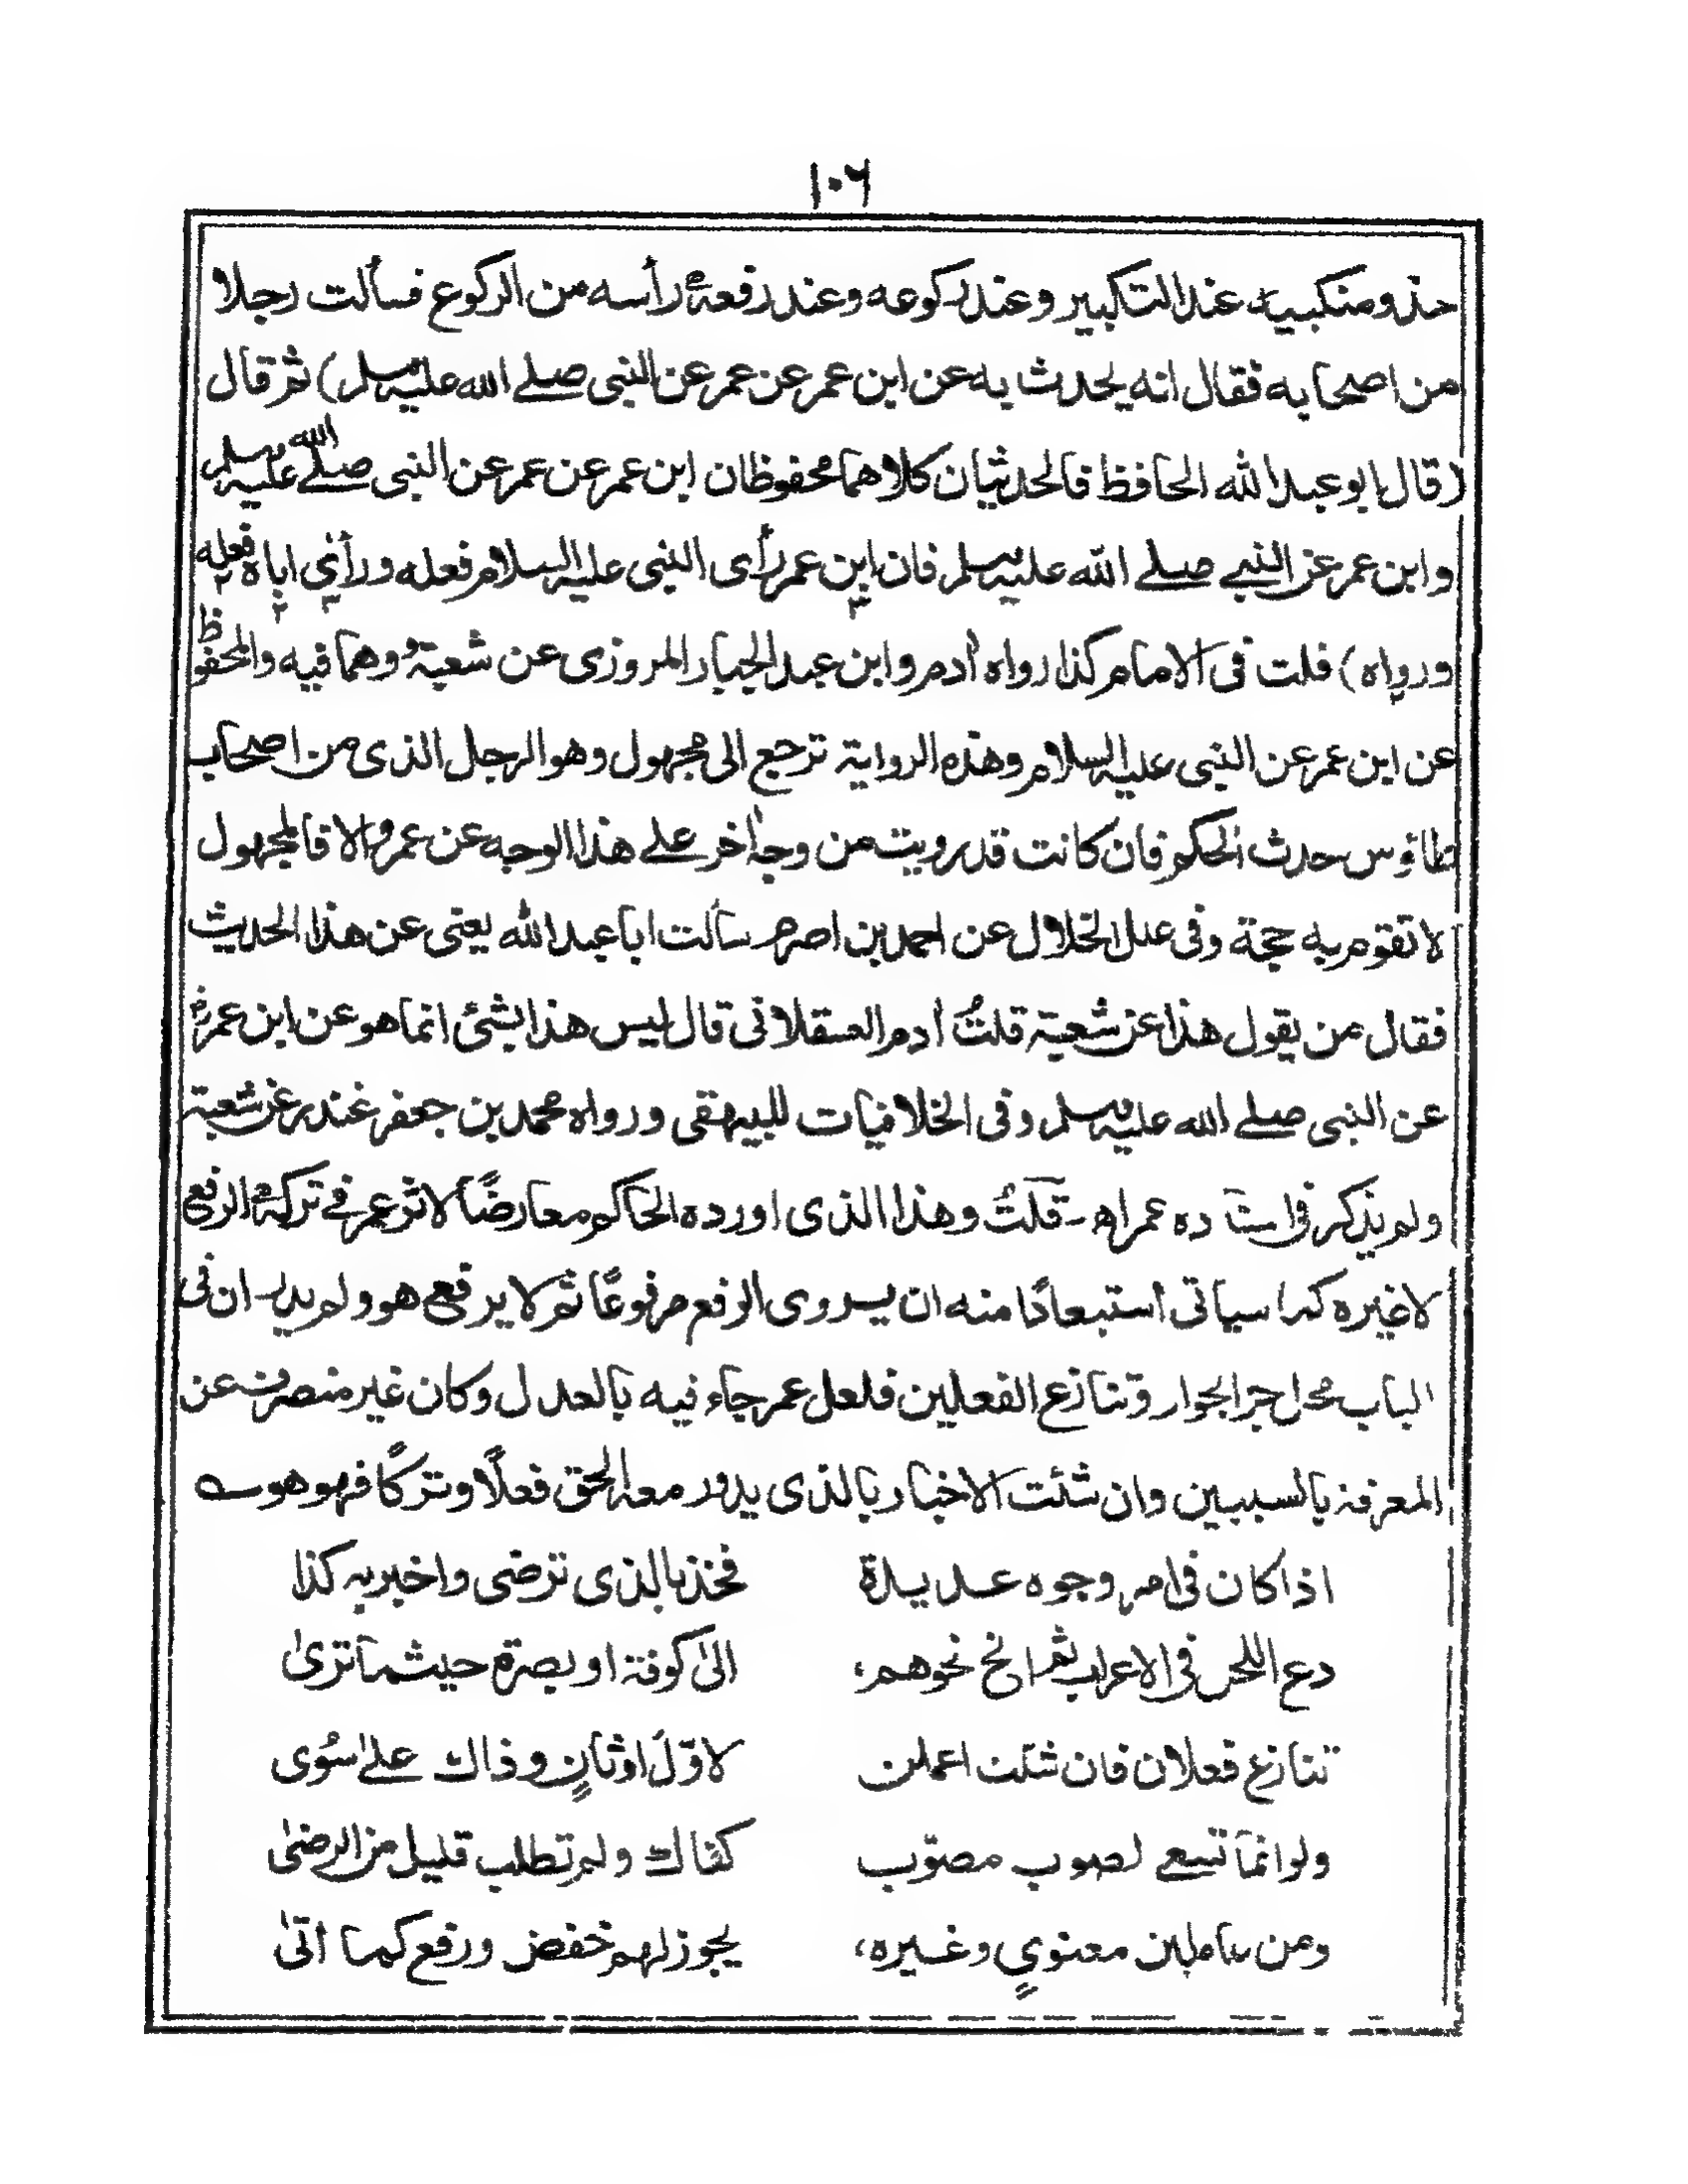 ۱۰۶
حذو منكبيه عند التكبير وعند ركوعه وعند رفعه رأسه من الركوع فسألت رجلا
من اصحابه فقال انه يحدث به عن ابن عمر عن عمر عن النبى صلے الله عليه وسلم) ثم قال
(قال ابو عبد الله الحافظ فالحديثان كلاهما محفوظان ابن عمر عن عمر عن النبى صلے الله عليه وسلم
وابن عمر عن النبى صلے الله عليه وسلم فان ابن عمر رأى النبى عليه السلام فعله ورأى اباه فعله
ورواه) قلت فى الامام كذا رواه اٰدم وابن عبد الجبار المروزى عن شعبة وهما فيه والمحفوظ
عن ابن عمر عن النبى عليه السلام وهذه الرواية ترجع الى مجهول وهو الرجل الذى من اصحاب
طاؤس حدث الحكم فان كانت قد رويت من وجه اٰخر علے هذا الوجه عن عمر والا فالمجهول
لا تقوم به حجة وفى علل الخلال عن احمد بن اصرم سألت ابا عبد الله يعنى عن هذا الحديث
فقال من يقول هذا عن شعبة قلتُ اٰدم العسقلانى قال ليس هذا بشئ انما هو عن ابن عمر
عن النبى صلے الله عليه وسلم وفى الخلافيات للبيهقى ورواه محمد بن جعفر غندر عن شعبة
ولم يذكر فى اسناده عمر اھ۔ قلتُ وهذا الذى اورده الحاكم معارضًا لاثر عمر فے تركه الرفع
لا غيره كما سياتى استبعادًا منه ان يروى الرفع مرفوعًا ثم لا يرفع هو ولم يدر ان فى
الباب محل جر الجوار وتنازع الفعلين فلعل عمر جاء فيه بالعدل وكان غير منصرف عن
المعرفة بالسببين وان شئت الاخبار بالذى يدور معه الحق فعلًا وتركًا فهو هو ـه
اذا كان فى امر وجوه عديدة فخذ بالذى ترضى واخبر به كذا
دع اللحن فى الاعراب ثم انح نحوهم، الىٰ كوفة او بصرة حيث ما ترىٰ
تنازع فعلان فان شئت اعملن لاوّل او ثانٍ وذاك علےٰ سُوى
ولو انما تسعے لصوب مصوّب كفاك ولم تطلب قليل من الرضىٰ
ومن عاملين معنوىٍ وغيره، يجوز لهم خفض ورفع كما اتىٰ